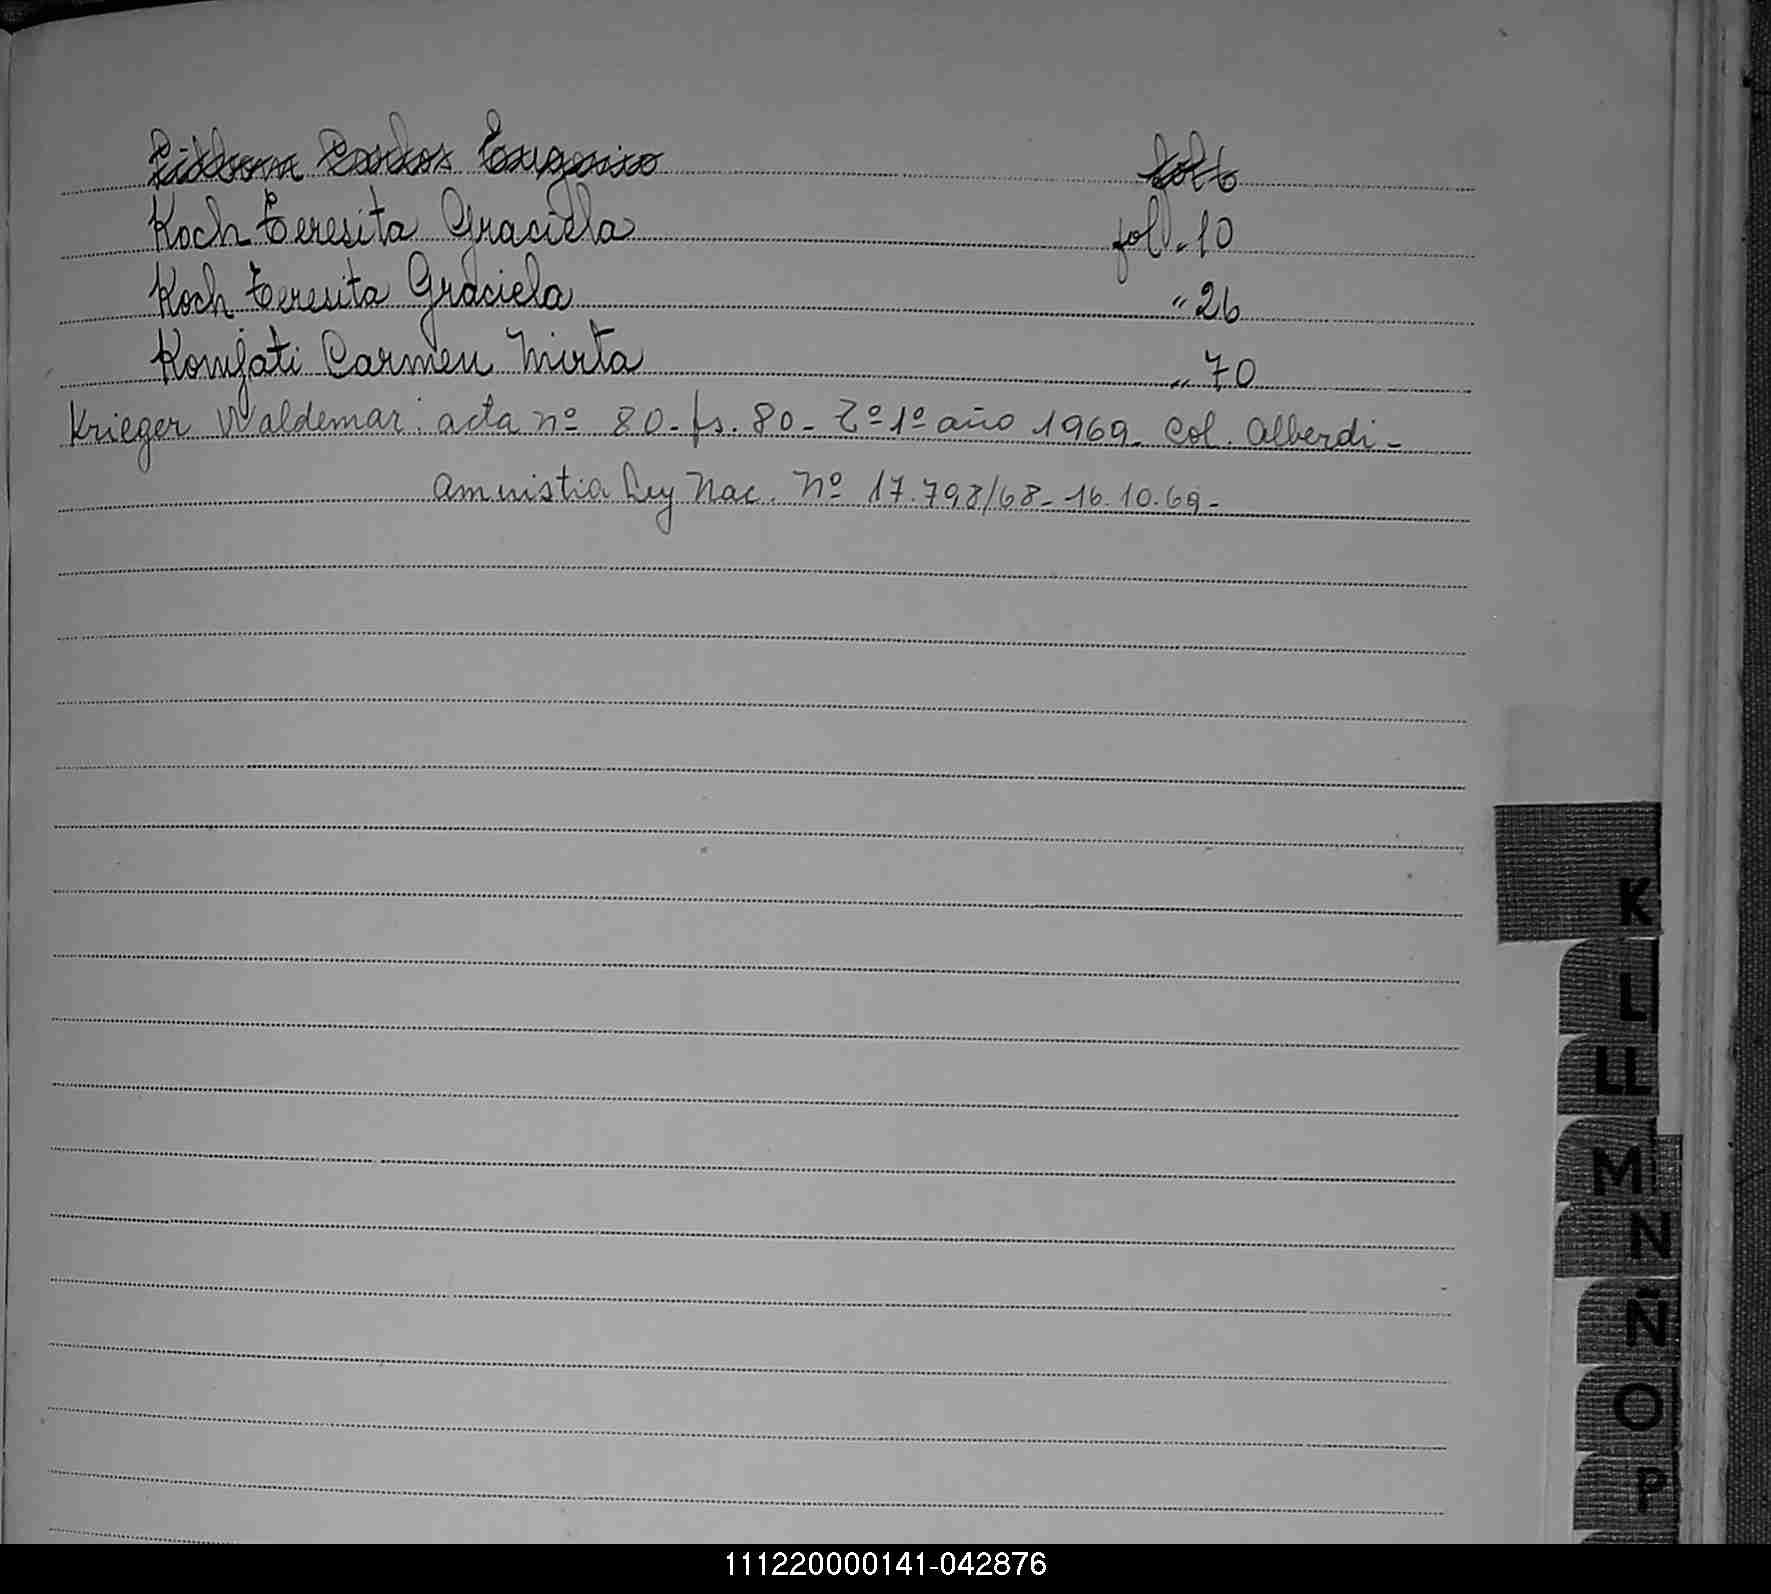 Carlos Eugenio
Koch Teresita Graciela fol. 10
Koch Teresita Graciela " 26
Komjati Carmen Mirta " 70
Krieger Waldemar: acta nº 80 - fs. 80 - Tº 1º año 1969 - Col. Alberdi -
Amnistia Ley Nac. Nº 17.798/68 - 16.10.69 -
K
L
LL
M
N
Ñ
O
P
111220000141-042876